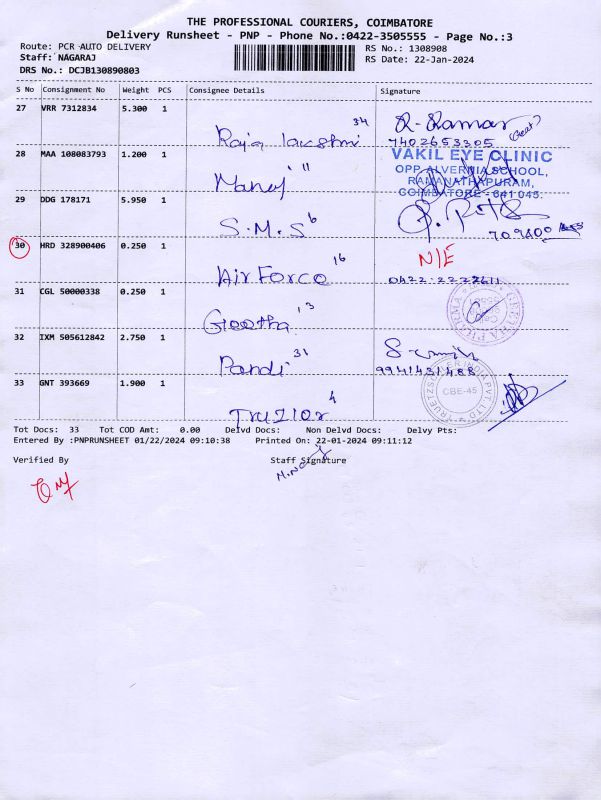 THE PROFESSIONAL COURIERS, COIMBATORE
Delivery Runsheet - PNP - Phone No.:0422-3505555 - Page No.:3
Route: PCR -AUTO DELIVERY RS No.: 1308908
Staff: NAGARAJ RS Date: 22-Jan-2024
DRS No.: DCJB130890803
S No Consignment No Weight PCS Consignee Details Signature
27 VRR 7312834 5.300 1
34 R. Kamar
Raja lakshmi 7402653305
28 MAA 108083793 1.200 1 VAKIL EYE CLINIC
OPP. ALVERNIA SCHOOL,
11 RAMANATHAPURAM,
Manoj COIMBATORE - 641 045.
29 DDG 178171 5.950 1
6
S.M.S
30 HRD 328900406 0.250 1 N/E
16
Air Force 0422-2222611
31 CGL 50000338 0.250 1
13 GEETHA PHARMA
Geetha
32 IXM 505612842 2.750 1
31
Pandi 9941431488
33 GNT 393669 1.900 1 CBE-45
4
Truzlor
Tot Docs: 33 Tot COD Amt: 0.00 Delvd Docs: Non Delvd Docs: Delvy Pts:
Entered By :PNPRUNSHEET 01/22/2024 09:10:38 Printed On: 22-01-2024 09:11:12
Verified By Staff Signature